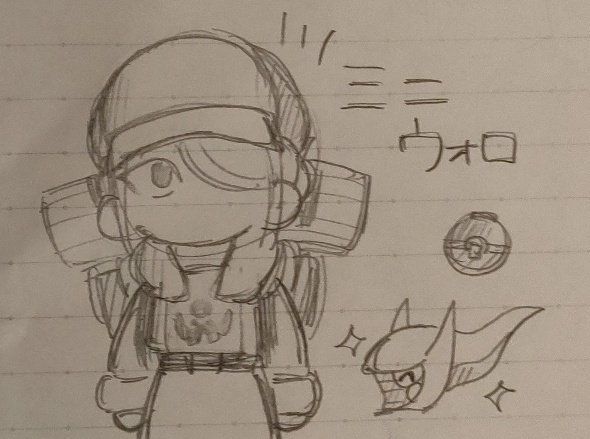 ミニ
ウォロ